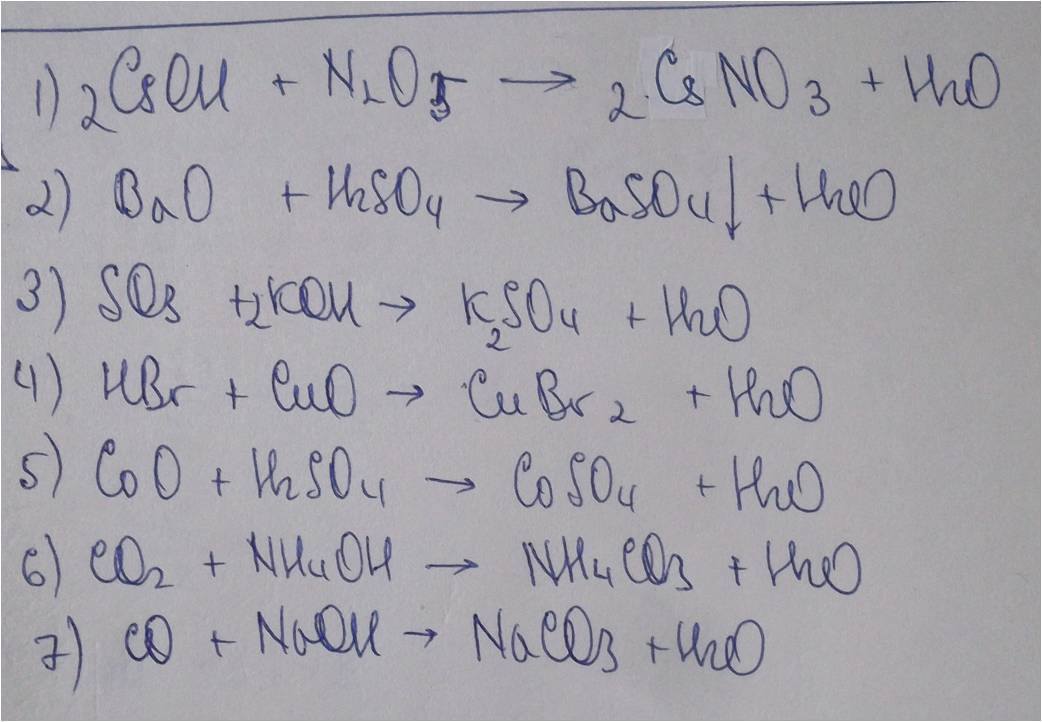 1) 2CsOH + N2O5 → 2CsNO3 + H2O
2) BaO + H2SO4 → BaSO4↓ + H2O
3) SO3 +2KOH → K2SO4 + H2O
4) HBr + CuO → CuBr2 + H2O
5) CoO + H2SO4 → CoSO4 + H2O
6) CO2 + NH4OH → NH4CO3 + H2O
7) CO + NaOH → NaCO3 + H2O